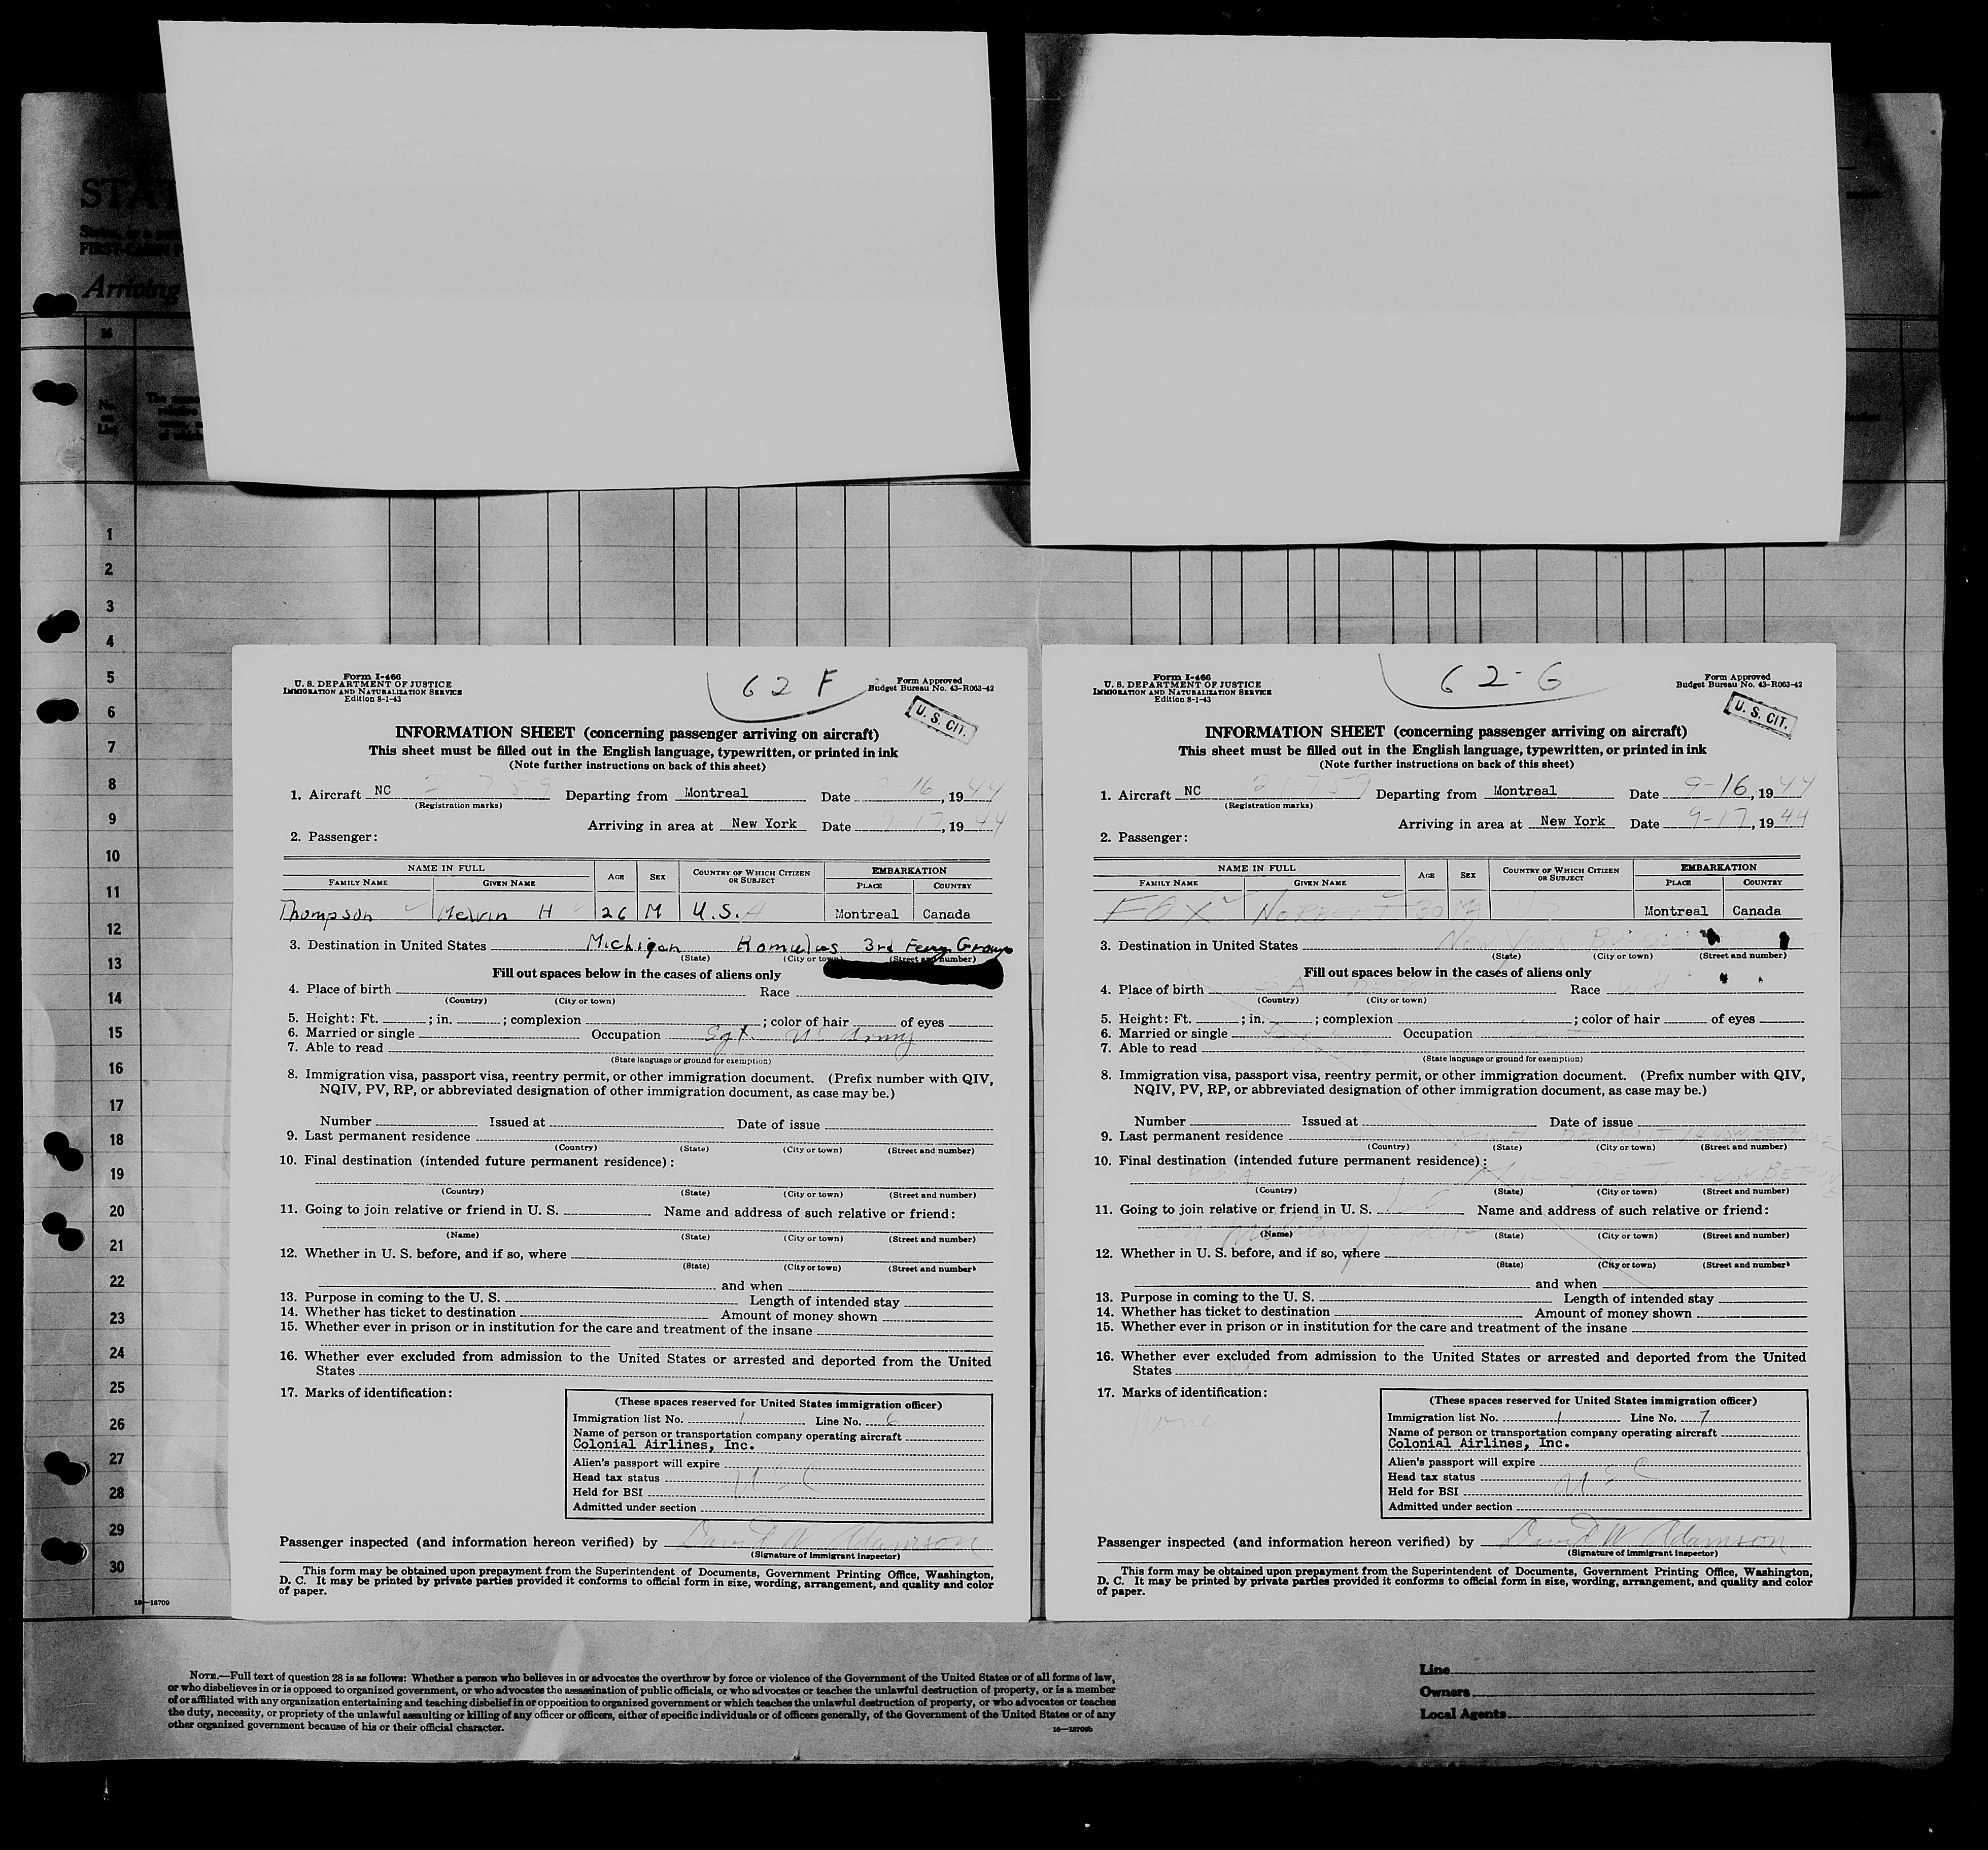 STAT
FIRST-CABIN P
Arriving
No.
on
List
1
2
3
4
5
6
7
8
9
10
11
12
13
14
15
16
17
18
19
20
21
22
23
24
25
26
27
28
29
30
16—18709
Form I-466
U. S. DEPARTMENT OF JUSTICE
IMMIGRATION AND NATURALIZATION SERVICE
Edition 8-1-43
62 F
Form Approved
Budget Bureau No. 43-R063-42
U. S. CIT.
INFORMATION SHEET (concerning passenger arriving on aircraft)
This sheet must be filled out in the English language, typewritten, or printed in ink
(Note further instructions on back of this sheet)
1. Aircraft NC Departing from Montreal Date 9-16, 1944
(Registration marks)
Arriving in area at New York Date 9-17, 1944
2. Passenger:
NAME IN FULL AGE SEX COUNTRY OF WHICH CITIZEN OR SUBJECT EMBARKATION
FAMILY NAME GIVEN NAME PLACE COUNTRY
Thompson Melvin H 26 M U.S.A Montreal Canada
3. Destination in United States Michigan Romulus 3rd Ferry Group
(State) (City or town) (Street and number)
Fill out spaces below in the cases of aliens only
4. Place of birth Race
(Country) (City or town)
5. Height: Ft. ; in. ; complexion ; color of hair of eyes
6. Married or single Occupation Sgt. US Army
7. Able to read
(State language or ground for exemption)
8. Immigration visa, passport visa, reentry permit, or other immigration document. (Prefix number with QIV,
NQIV, PV, RP, or abbreviated designation of other immigration document, as case may be.)
Number Issued at Date of issue
9. Last permanent residence
(Country) (State) (City or town) (Street and number)
10. Final destination (intended future permanent residence):
(Country) (State) (City or town) (Street and number)
11. Going to join relative or friend in U. S. Name and address of such relative or friend:
(Name) (State) (City or town) (Street and number)
12. Whether in U. S. before, and if so, where
(State) (City or town) (Street and number)
and when
13. Purpose in coming to the U. S. Length of intended stay
14. Whether has ticket to destination Amount of money shown
15. Whether ever in prison or in institution for the care and treatment of the insane
16. Whether ever excluded from admission to the United States or arrested and deported from the United
States
17. Marks of identification:
(These spaces reserved for United States immigration officer)
Immigration list No. 1 Line No. 6
Name of person or transportation company operating aircraft
Colonial Airlines, Inc.
Alien's passport will expire
Head tax status USC
Held for BSI
Admitted under section
Passenger inspected (and information hereon verified) by David W Adamson
(Signature of immigrant inspector)
This form may be obtained upon prepayment from the Superintendent of Documents, Government Printing Office, Washington,
D. C. It may be printed by private parties provided it conforms to official form in size, wording, arrangement, and quality and color
of paper.
Form I-466
U. S. DEPARTMENT OF JUSTICE
IMMIGRATION AND NATURALIZATION SERVICE
Edition 8-1-43
62-G
Form Approved
Budget Bureau No. 43-R063-42
U. S. CIT.
INFORMATION SHEET (concerning passenger arriving on aircraft)
This sheet must be filled out in the English language, typewritten, or printed in ink
(Note further instructions on back of this sheet)
1. Aircraft NC 21759 Departing from Montreal Date 9-16, 1944
(Registration marks)
Arriving in area at New York Date 9-17, 1944
2. Passenger:
NAME IN FULL AGE SEX COUNTRY OF WHICH CITIZEN OR SUBJECT EMBARKATION
FAMILY NAME GIVEN NAME PLACE COUNTRY
FOX NORBERT 30 MA US Montreal Canada
3. Destination in United States New York
(State) (City or town) (Street and number)
Fill out spaces below in the cases of aliens only
4. Place of birth Race WH
(Country) (City or town)
5. Height: Ft. ; in. ; complexion ; color of hair of eyes
6. Married or single Occupation
7. Able to read
(State language or ground for exemption)
8. Immigration visa, passport visa, reentry permit, or other immigration document. (Prefix number with QIV,
NQIV, PV, RP, or abbreviated designation of other immigration document, as case may be.)
Number Issued at Date of issue
9. Last permanent residence
(Country) (State) (City or town) (Street and number)
10. Final destination (intended future permanent residence):
USA
(Country) (State) (City or town) (Street and number)
11. Going to join relative or friend in U. S. No Name and address of such relative or friend:
On Military orders
(Name) (State) (City or town) (Street and number)
12. Whether in U. S. before, and if so, where
(State) (City or town) (Street and number)
and when
13. Purpose in coming to the U. S. Length of intended stay
14. Whether has ticket to destination Amount of money shown
15. Whether ever in prison or in institution for the care and treatment of the insane
16. Whether ever excluded from admission to the United States or arrested and deported from the United
States
17. Marks of identification:
None
(These spaces reserved for United States immigration officer)
Immigration list No. 1 Line No. 7
Name of person or transportation company operating aircraft
Colonial Airlines, Inc.
Alien's passport will expire
Head tax status USC
Held for BSI
Admitted under section
Passenger inspected (and information hereon verified) by David W Adamson
(Signature of immigrant inspector)
This form may be obtained upon prepayment from the Superintendent of Documents, Government Printing Office, Washington,
D. C. It may be printed by private parties provided it conforms to official form in size, wording, arrangement, and quality and color
of paper.
NOTE.—Full text of question 28 is as follows: Whether a person who believes in or advocates the overthrow by force or violence of the Government of the United States or of all forms of law,
or who disbelieves in or is opposed to organized government, or who advocates the assassination of public officials, or who advocates or teaches the unlawful destruction of property, or is a member
of or affiliated with any organization entertaining and teaching disbelief in or opposition to organized government or which teaches the unlawful destruction of property, or who advocates or teaches
the duty, necessity, or propriety of the unlawful assaulting or killing of any officer or officers, either of specific individuals or of officers generally, of the Government of the United States or of any
other organized government because of his or their official character.
16—18709b
Line
Owners
Local Agents